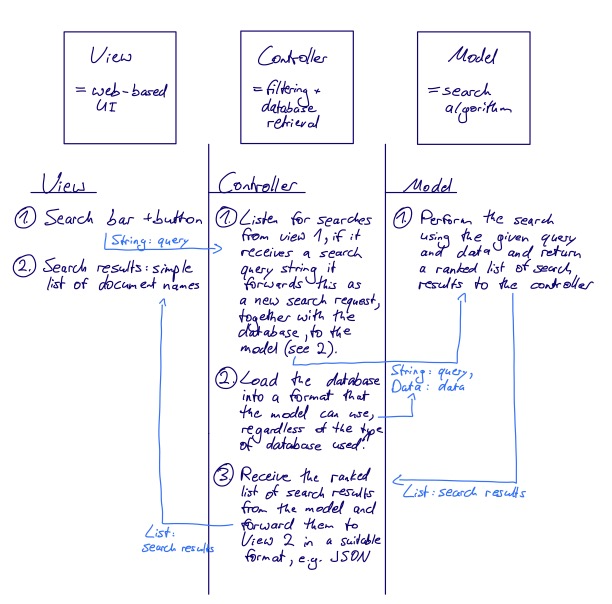 View
= web-based
UI
Controller
= filtering +
database
retrieval
Model
= search
algorithm
View
1. Search bar + button
String: query
2. Search results: simple
list of document names
List:
search results
Controller
1. Listen for searches
from view 1, if it
receives a search
query string it
forwards this as
a new search request,
together with the
database, to the
model (see 2).
String: query,
Data: data
2. Load the database
into a format that
the model can use,
regardless of the type
of database used.
3. Receive the ranked
list of search results
from the model and
forward them to
View 2 in a suitable
format, e.g. JSON
Model
1. Perform the search
using the given query
and data and return
a ranked list of search
results to the controller
List: search results